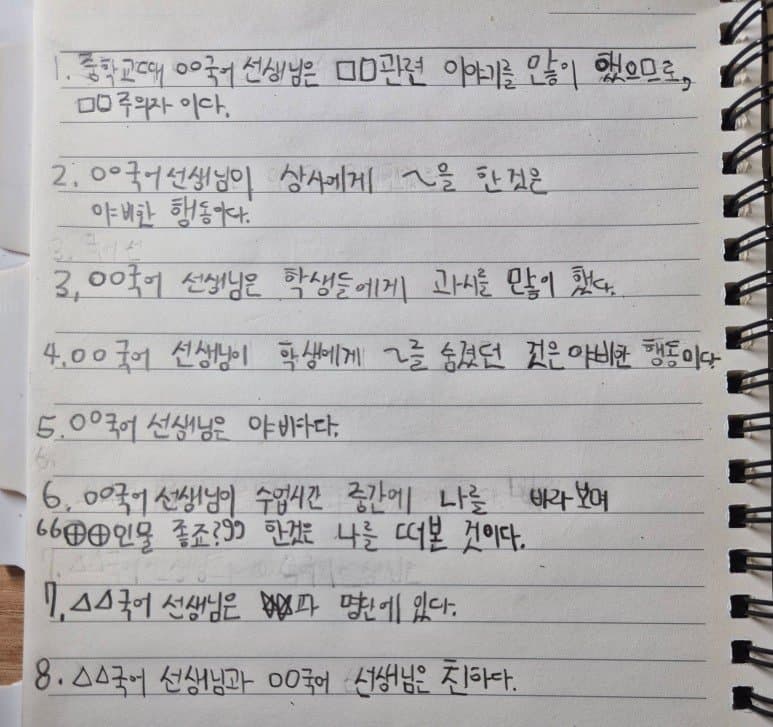 1. 중학교때 OO국어 선생님은 □□관련 이야기를 많이 했으므로,
□□주의자 이다.
2. OO국어선생님이 상사에게 ~을 한것은
야비한 행동이다.
3. OO국어 선생님은 학생들에게 과시를 많이 했다.
4. OO국어 선생님이 학생에게 ~를 숨겼던 것은 야비한 행동이다
5. OO국어 선생님은 야비하다.
6. OO국어선생님이 수업시간 중간에 나를 바라보며
"⊕⊕인물 좋죠?" 한것은 나를 떠본 것이다.
7. △△국어 선생님은 파 명단에 있다.
8. △△국어 선생님과 OO국어 선생님은 친하다.